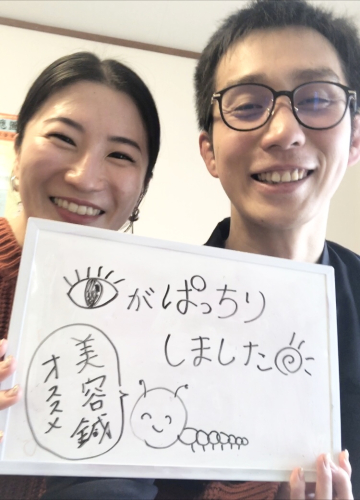 がぱっちり
しました
美容鍼
オススメ